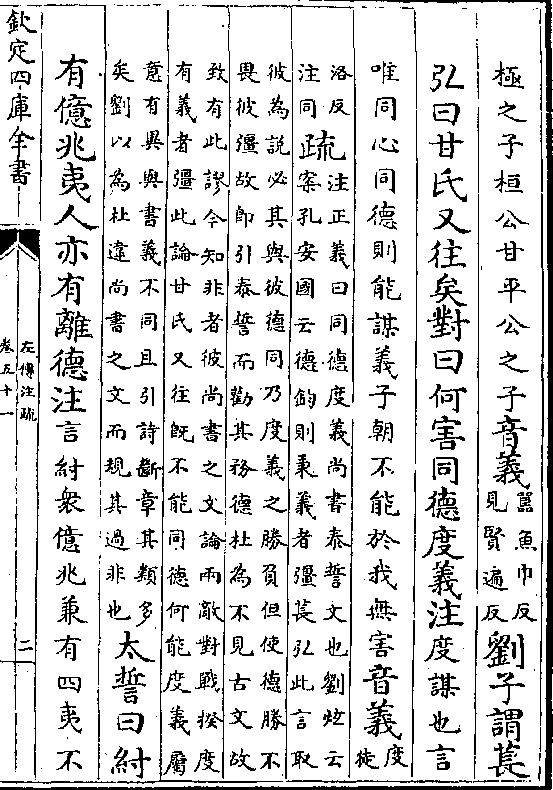 極之子桓公甘平公之子音義
嚚魚巾反
見賢遍反
劉子謂萇
弘曰甘氏又往矣對曰何害同德度義注度謀也言
唯同心同德則能謀義子朝不能於我無害音義
度
徒
洛反
注同
疏
注正義曰同德度義尚書泰誓文也劉炫云
案孔安國云德鈞則秉義者彊萇弘此言取
彼為說必其與彼德同乃度義之勝負但使德勝不
畏彼彊故即引泰誓而勸其務德杜為不見古文故
致有此謬今知非者彼尚書之文論兩敵對戰揆度
有義者彊此論甘氏又往既不能同德何能度義屬
意有異與書義不同且引詩斷章其類多
矣劉以為杜違尚書之文而規其過非也
太誓曰紂
有億兆夷人亦有離德注言紂衆億兆兼有四夷不
欽定四庫全書
左傳注疏
卷五十一
二